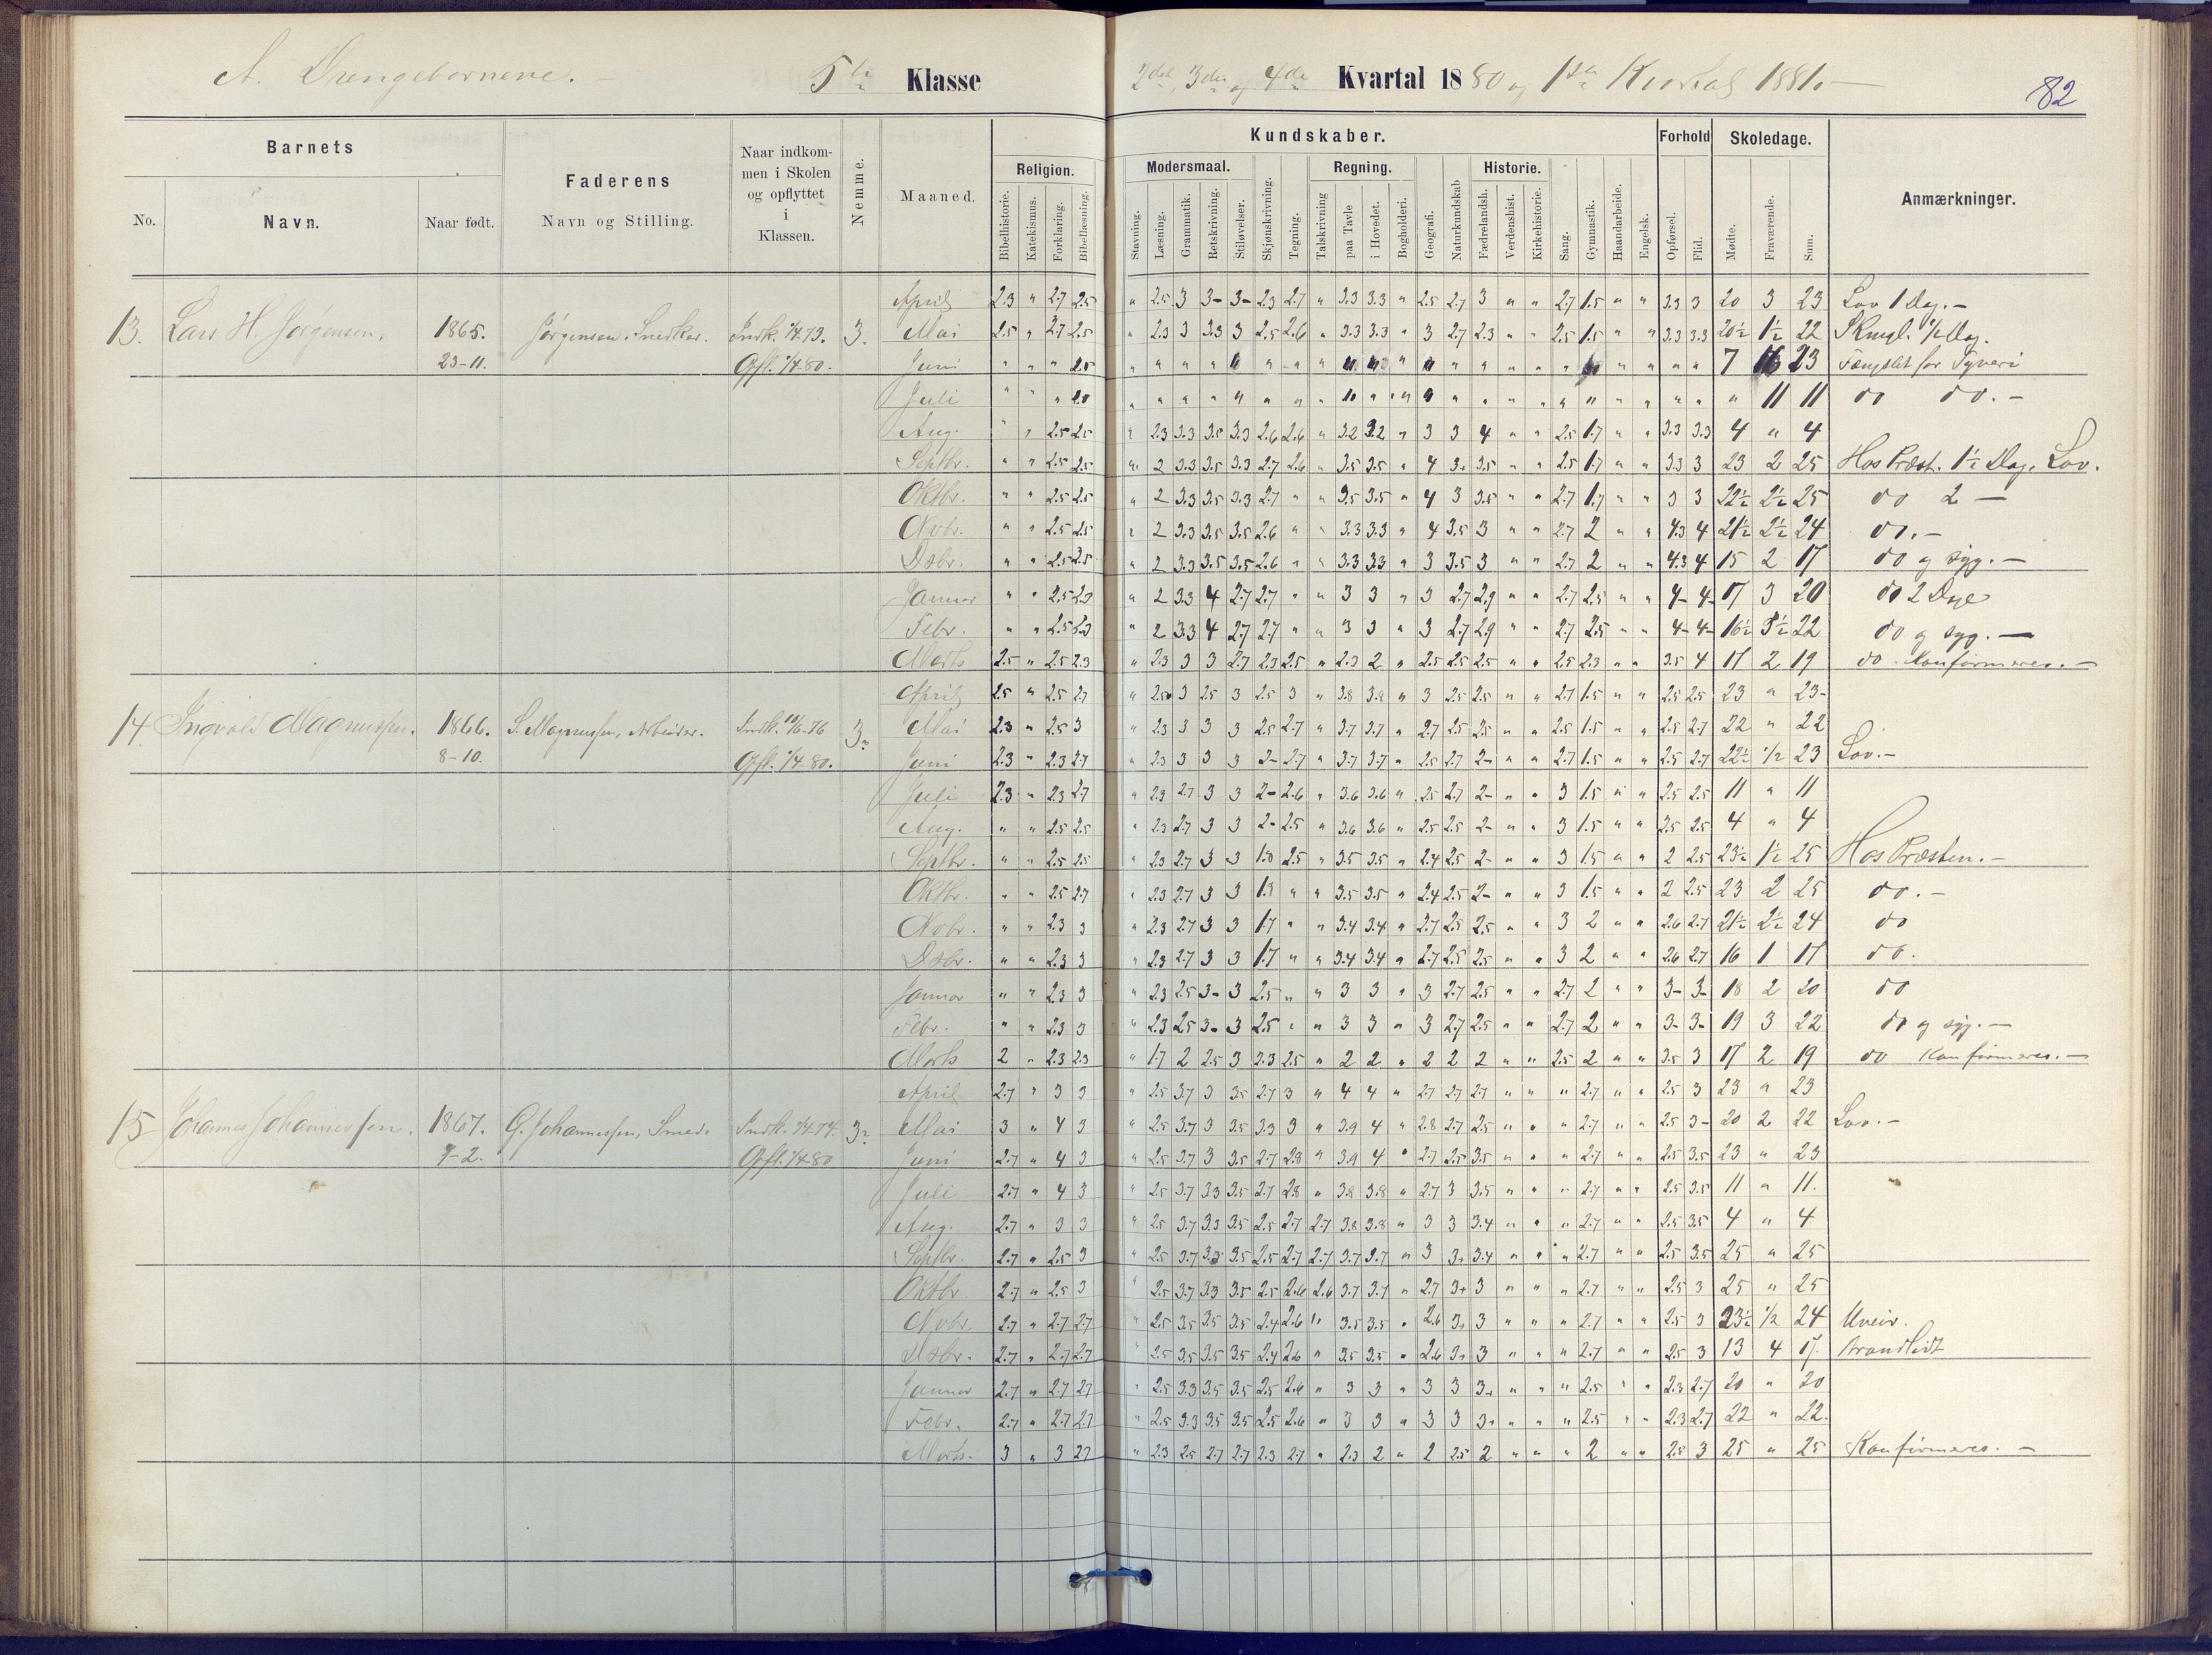 A. Drengebørnene. 5te Klasse 2det, 3die og 4de Kvartal 1880 og 1ste Kvartal 1881.
82
Barnets
No. Navn. Naar født.
Faderens
Navn og Stilling.
Naar indkom-
men i Skolen
og opflyttet
i
Klassen.
Nemme.
Maaned.
Kundskaber.
Religion.
Bibelhistorie. Katekismus. Forklaring. Bibellæsning.
Modersmaal.
Stavning. Læsning. Grammatik. Retskrivning. Stiløvelser. Skjønskrivning. Tegning.
Regning.
Talskrivning paa Tavle i Hovedet. Bogholderi. Geografi. Naturkundskab
Historie.
Fædrelandsh. Verdenshist. Kirkehistorie. Sang. Gymnastik. Haandarbeide. Engelsk.
Forhold
Opførsel. Flid.
Skoledage.
Mødte. Fraværende. Sum.
Anmærkninger.
April 2.3 " 2.7 2.5 " 2.5 3 3- 3- 2.3 2.7 " 3.3 3.3 " 2.5 2.7 3 " " 2.7 1.5 " " 3.3 3 20 3 23 Lov 1 Dag.-
13. Lars H. Jørgensen. 1865. Jørgensen. Snedker. Indk. 1/4 73. 3. Mai 2.5 " 2.7 2.5 " 2.3 3 3.3 3 2.5 2.6 " 3.3 3.3 " 3 2.7 2.3 " " 2.5 1.5 " " 3.3 3.3 20½ 1½ 22
23-11. Opfl. 1/4 80. Juni " " " " " " " 7 16 23 Fængslet for Tyveri
Juli " " " " " " 11 11 do do.-
Aug. " " 2.5 2.5 " 2.3 3.3 3.5 3.3 2.6 2.6 " 3.2 3.2 " 3 3 4 " " 2.5 1.7 " " 3.3 3.3 4 " 4
Septbr. " " 2.5 2.5 " 2 3.3 3.5 3.3 2.7 2.6 " 3.5 3.5 " 4 3. 3.5 " " 2.5 1.7 " " 3.3 3 23 2 25 Hos Præst. 1½ Dag. Lov.
Oktbr. " " 2.5 2.5 " 2 3.3 3.5 3.3 2.7 " " 3.5 3.5 " 4 3 3.5 " " 2.7 1.7 " " 3 3 22½ 2½ 25 do 2 -
Novbr. " " 2.5 2.5 " 2 3.3 3.5 3.5 2.6 " " 3.3 3.3 " 4 3.5 3 " " 2.7 2 " " 4.3 4 21½ 2½ 24 do.-
Dsbr. " " 2.5 2.5 " 2 3.3 3.5 3.5 2.6 " " 3.3 3.3 " 3 3.5 3 " " 2.7 2 " " 4.3 4 15 2 17 do og syg.-
Januar " " 2.5 2.3 " 2 3.3 4 2.7 2.7 " " 3 3 " 3 2.7 2.9 " " 2.7 2.5 " " 4- 4- 17 3 20 do 2 Dage
Febr. " " 2.5 2.3 " 2 3.3 4 2.7 2.7 " " 3 3 " 3 2.7 2.9 " " 2.7 2.5 " " 4- 4- 16½ 5½ 22 do og syg.-
Marts 2.5 " 2.5 2.3 " 2.3 3 3 2.7 2.3 2.5 " 2.3 2 " 2.5 2.5 2.5 " " 2.5 2.3 " " 3.5 4 17 2 19 do. Konfirmeres.-
April 2.5 " 2.5 2.7 " 2.5 3 2.5 3 2.5 3 " 3.8 3.8 " 3 2.5 2.5 " " 2.7 1.5 " " 2.5 2.5 23 " 23-
14. Ingvald Magnussen. 1866. S. Magnussen, Arbeider. Indk. 19/6-76 3. Mai 2.3 " 2.5 3 " 2.3 3 3 3 2.5 2.7 " 3.7 3.7 " 2.7 2.5 2.5 " " 2.5 1.5 " " 2.5 2.7 22 " 22
8-10. Opfl. 1/4-80. Juni 2.3 " 2.3 2.7 " 2.3 3 3 3 2- 2.7 " 3.7 3.7 " 2.5 2.7 2- " " 2.7 1.5 " " 2.5 2.7 22½ 1/2 23 Lov.-
Juli 2.3 " 2.3 2.7 " 2.3 2.7 3 3 2- 2.6 " 3.6 3.6 " 2.5 2.7 2- " " 3 1.5 " " 2.5 2.5 11 " 11
Aug. " " 2.5 2.5 " 2.3 2.7 3 3 2- 2.5 " 3.6 3.6 " 2.5 2.5 2- " " 3 1.5 " " 2.5 2.5 4 " 4
Septbr. " " 2.5 2.5 " 2.3 2.7 3 3 1.8 2.5 " 3.5 3.5 " 2.4 2.5 2- " " 3 1.5 " " 2 2.5 23½ 1½ 25 Hos Præsten.-
Oktbr. " " 2.5 2.7 " 2.3 2.7 3 3 1.9 " " 3.5 3.5 " 2.4 2.5 2- " " 3 1.5 " " 2 2.5 23 2 25 do.-
Novbr. " " 2.3 3 " 2.3 2.7 3 3 1.7 " " 3.4 3.4 " 2.7 2.5 2.5 " " 3 2 " " 2.6 2.7 21½ 2½ 24 do
Dsbr. " " 2.3 3 " 2.3 2.7 3 3 1.7 " " 3.4 3.4 " 2.7 2.5 2.5 " " 3 2 " " 2.6 2.7 16 1 17 do.
Januar " " 2.3 3 " 2.3 2.5 3- 3 2.5 " " 3 3 " 3 2.7 2.5 " " 2.7 2 " " 3- 3- 18 2 20 do
Febr. " " 2.3 3 " 2.3 2.5 3- 3 2.5 " " 3 3 " 3 2.7 2.5 " " 2.7 2 " " 3- 3- 19 3 22 do og syg.-
Marts 2 " 2.3 2.3 " 1.7 2 2.5 3 2.3 2.5 " 2 2 " 2 2 2 " " 2.5 2 " " 3.5 3 17 2 19 do Konfirmeres.-
April 2.7 " 3 3 " 2.5 3.7 3 3.5 2.7 3 " 4 4 " 2.7 2.7 2.7 " " " 2.7 " " 2.5 3 23 " 23
15 Johannes Johannessen. 1867. G. Johannessen, Smed. Indk. 1/4 74. 3. Mai 3 " 4 3 " 2.5 3.7 3 3.5 3.3 3 " 3.9 4 " 2.8 2.7 2.5 " " " 2.7 " " 2.5 3- 20 2 22 Lov.-
9-2. Opfl. 1/4 80 Juni 2.7 " 4 3 " 2.5 3.7 3 3.5 2.7 2.8 " 3.9 4 " 2.7 2.5 3.5 " " " 2.7 " " 2.5 3.5 23 " 23
Juli 2.7 " 4 3 " 2.5 3.7 3.3 3.5 2.7 2.8 " 3.8 3.8 " 2.7 3 3.5 " " " 2.7 " " 2.5 3.5 11 " 11.
Aug. 2.7 " 3 3 " 2.5 3.7 3.3 3.5 2.5 2.7 2.7 3.8 3.8 " 3 3 3.4 " " " 2.7 " " 2.5 3.5 4 " 4
Septbr. 2.7 " 2.5 3 " 2.5 3.7 3.3 3.5 2.5 2.7 2.7 3.7 3.7 " 3 3+ 3.4 " " " 2.7 " " 2.5 3.5 25 " 25
Oktbr. 2.7 " 2.5 3 " 2.5 3.7 3.3 3.5 2.5 2.6 2.6 3.7 3.7 " 2.7 3+ 3 " " " 2.7 " " 2.5 3 25 " 25
Novbr. 2.7 " 2.7 2.7 " 2.5 3.5 3.5 3.5 2.4 2.6 " 3.5 3.5 " 2.6 3+ 3 " " " 2.7 " " 2.5 3 23½ 1/2 24 Uveir.
Dsbr. 2.7 " 2.7 2.7 " 2.5 3.5 3.5 3.5 2.4 2.6 " 3.5 3.5 " 2.6 3+ 3 " " " 2.7 " " 2.5 3 13 4 17.
Januar 2.7 " 2.7 2.7 " 2.5 3.3 3.5 3.5 2.5 2.6 " 3 3 " 3 3 3+ " " " 2.5 " " 2.3 2.7 20 " 20
Febr. 2.7 " 2.7 2.7 " 2.5 3.3 3.5 3.5 2.5 2.6 " 3 3 " 3 3 3+ " " " 2.5 " " 2.3 2.7 22 " 22.
Marts. 3 " 3 2.7 " 2.3 2.5 2.7 2.7 2.3 2.7 " 2.3 2 " 2 2.5 2 " " " 2 " " 2.5 3 25 " 25 Konfirmeres.-